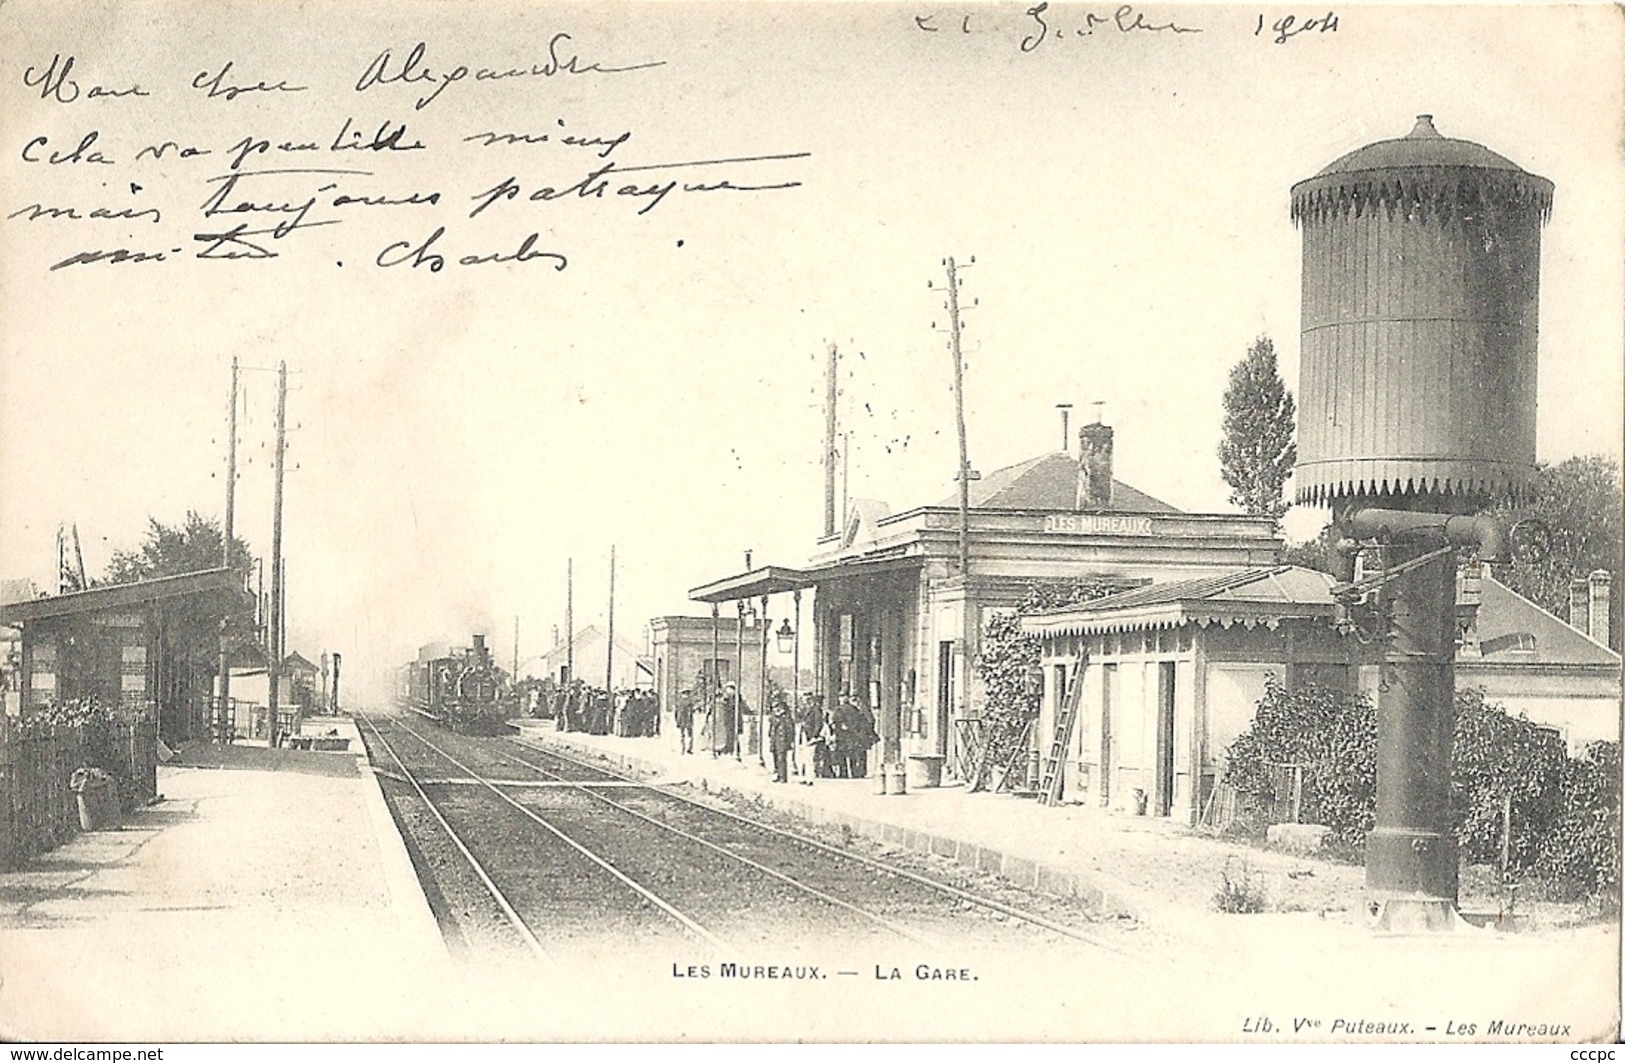 1904
Mon cher Alexandre
Cela va petit mieux
mais toujours patraque
Charles
LES MUREAUX
LES MUREAUX. — LA GARE.
Lib. Vve Puteaux. - Les Mureaux
cccpc
www.delcampe.net